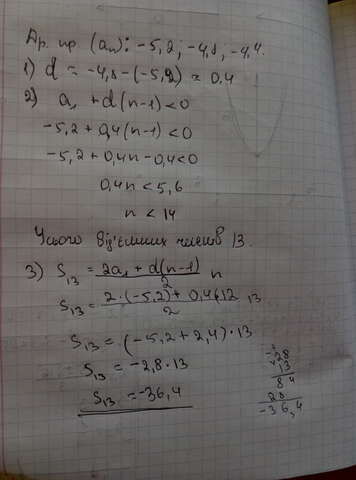 Ар. пр (aₙ): -5,2; -4,8; -4,4.
1) d = -4,8-(-5,2) = 0,4
2) a₁ + d(n-1) < 0
-5,2 + 0,4(n-1) < 0
-5,2 + 0,4n - 0,4 < 0
0,4n < 5,6
n < 14
Усього від'ємних членів 13.
3) S₁₃ = (2a₁ + d(n-1))/2 n
S₁₃ = (2·(-5,2) + 0,4·12)/2 13
S₁₃ = (-5,2 + 2,4)·13
S₁₃ = -2,8·13
S₁₃ = -36,4
-28
13
84
28
-36,4